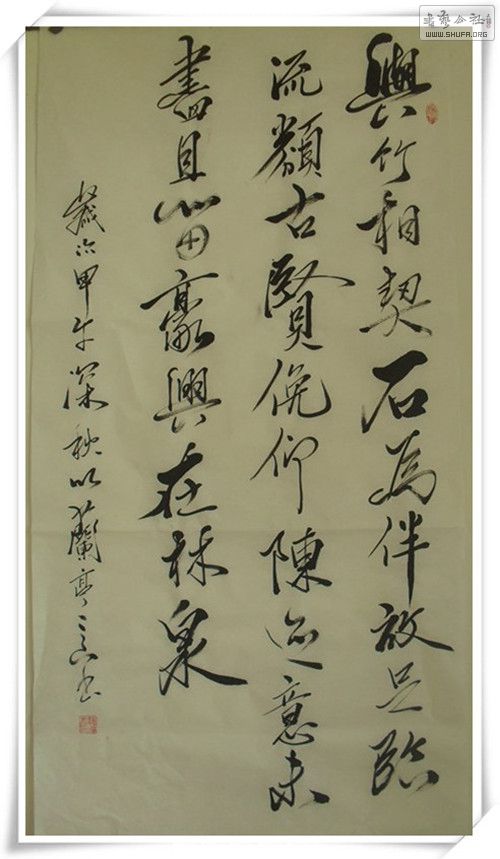 書藝公社
WWW.SHUFA.ORG
與竹相契石為伴放足臨
流類古賢俛仰陳迹意未
盡且留豪興在林泉
歲次甲午深秋以蘭亭書